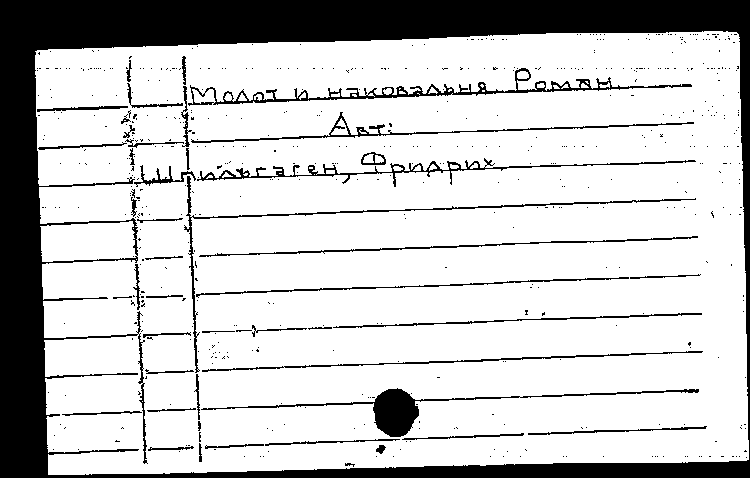 Молот и наковальня. Роман.
Авт:
Шпильгаген, Фридрих.